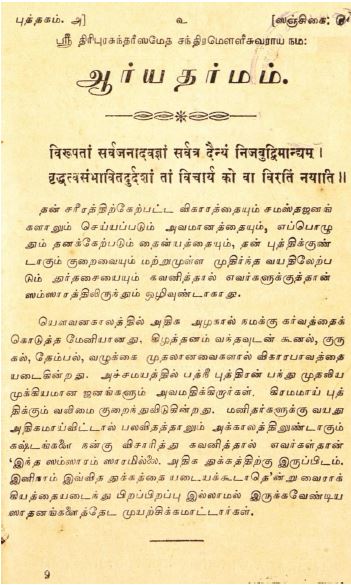 புத்தகம். அ] உ [ஸஞ்சிகை:
ஸ்ரீ திரிபுரசுந்தரீஸமேத சந்திரமௌளீசுவராய நம:
ஆர்யதர்மம்.
विरूपतां सर्वजनादवज्ञां सर्वत्र दैन्यं निजबुद्धिमान्द्यम् ।
वृद्धत्वसंभावितदुर्दशां तां विचार्य को वा विरतिं नयाति ॥
தன் சரீரத்திற்கேற்பட்ட விகாரத்தையும் ஸமஸ்தஜனங்
களாலும் செய்யப்படும் அவமானத்தையும், எப்பொழு
தும் தனக்கேற்படும் தைன்யத்தையும், தன் புத்திக்குண்
டாகும் குறைவையும் மற்றுமுள்ள முதிர்ந்த வயதிலேற்ப
டும் துர்தசையையும் கவனித்தால் எவர்களுக்குத்தான்
ஸம்ஸாரத்திலிருந்தும் ஒழிவுண்டாகாது.
யௌவனகாலத்தில் அதிக அழகால் நமக்கு கர்வத்தைக்
கொடுத்த மேனியானது. கிழத்தனம் வந்தவுடன் கூனல், குருகு
கல், தேம்பல், வழுக்கை முதலானவைகளால் விகாரபாவத்தை
யடைகின்றது. அச்சமயத்தில் பத்நீ புத்திரன் பந்து முதலிய
முக்கியமான ஜனங்களும் அவமதிக்கிறார்கள். கிரமமாய் புத்
திக்கும் வலிமை குறைந்துவிடுகின்றது. மனிதர்களுக்கு வயது
அதிகமாய்விட்டால் பலவிதத்தாலும் அக்காலத்திலுண்டாகும்
கஷ்டங்களை நன்கு விசாரித்து கவனித்தால் எவர்கள்தான்
‘இந்த ஸம்ஸாரம் ஸாரமில்லை. அதிக துக்கத்திற்கு இருப்பிடம்.
இனிநாம் இவ்வித துக்கத்தை யடையக்கூடாதெ’ன்று வைராக்
கியத்தையடைந்து பிறப்பிறப்பு இல்லாமல் இருக்கவேண்டிய
ஸாதனங்களைத்தேட முயற்சிக்கமாட்டார்கள்.
9